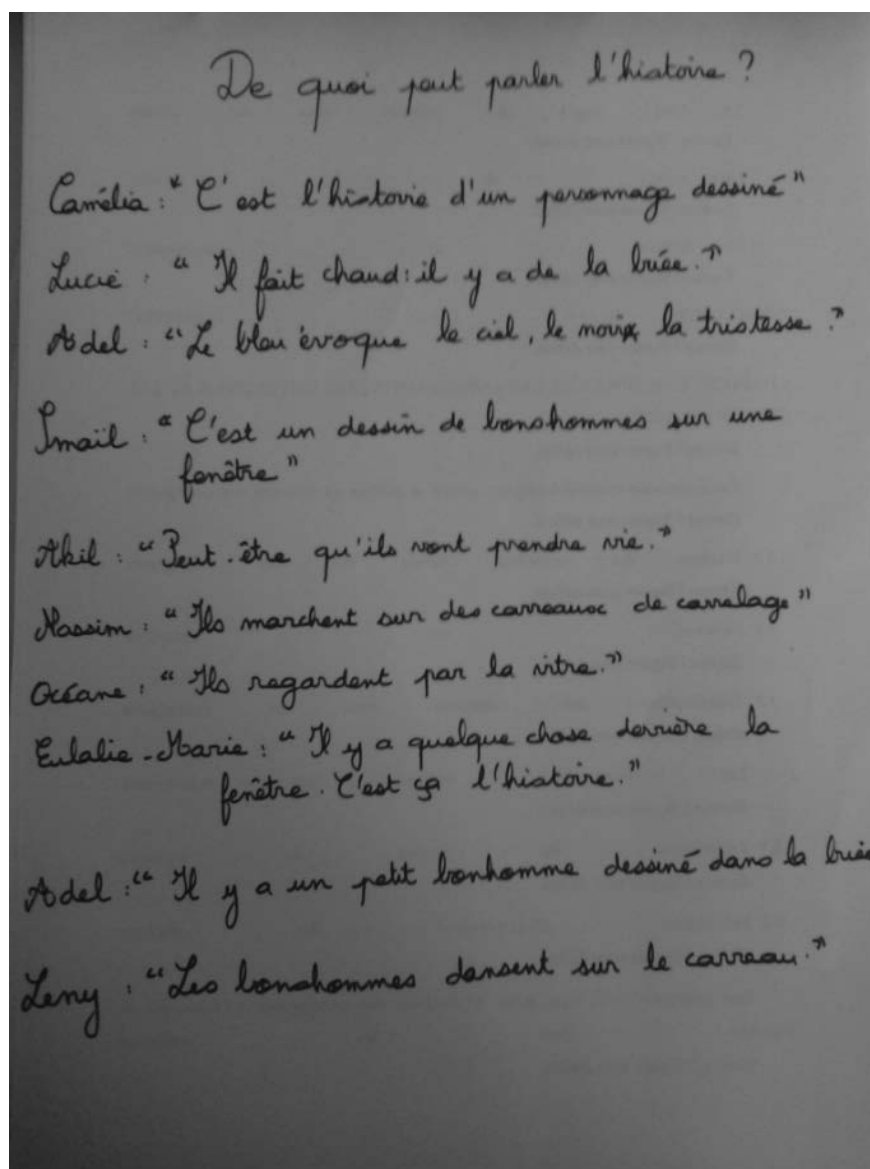 De quoi peut parler l'histoire ?
Camélia : " C'est l'histovie d'un personnage dessiné "
Lucie : " Il fait chaud : il y a de la buée. "
Adel : " Le bleu évoque le ciel, le noir la tristesse . "
Smaïl : " C'est un dessin de bonshommes sur une
fenêtre "
Akil : " Peut-être qu'ils vont prendre vie. "
Nassim : " Ils marchent sur des carreaux de carrelage "
Océane : " Ils regardent par la vitre. "
Eulalie-Marie : " Il y a quelque chose derrière la
fenêtre. C'est ça l'histoire. "
Adel : " Il y a un petit bonhomme dessiné dans la buée
Leny : " Les bonshommes dansent sur le carreau. "